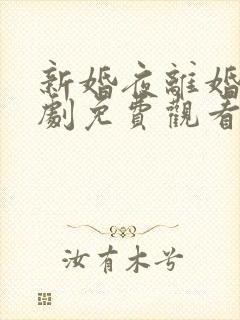 新婚夜離婚
劇免費觀看
汝有木兮